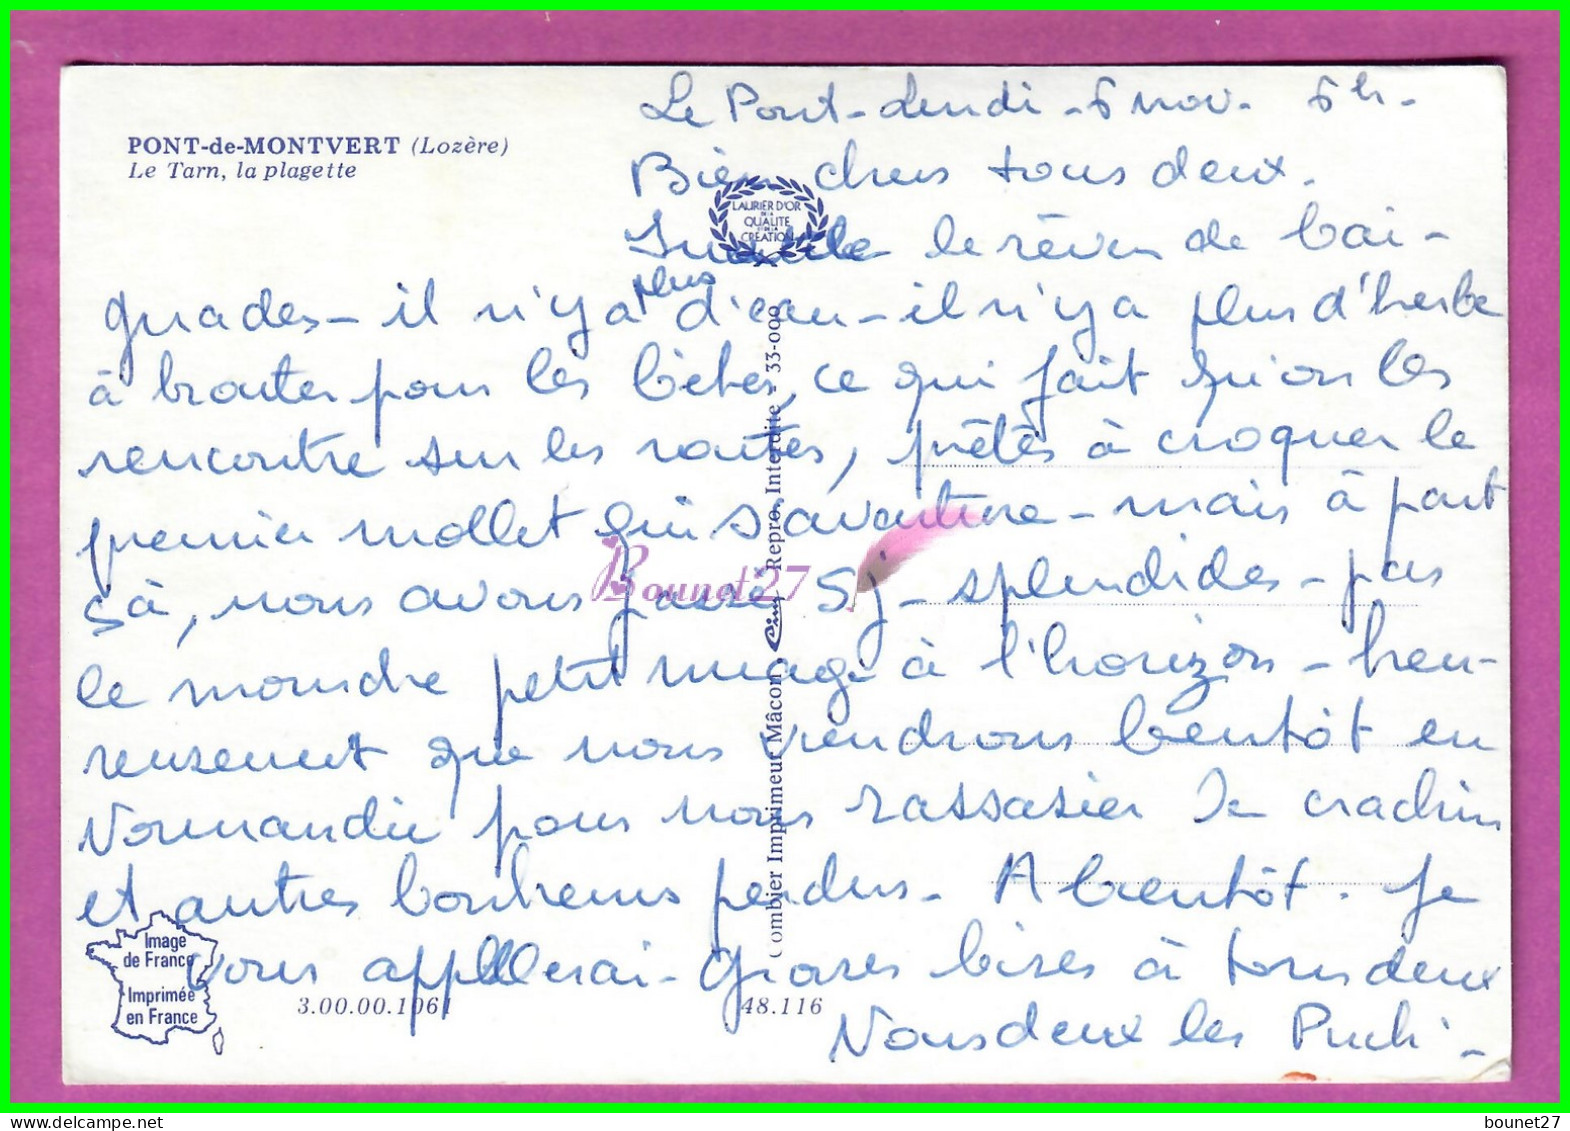 PONT-de-MONTVERT (Lozère)
Le Tarn, la plagette
Le Pont-Lundi-6 nov. 6h-
Bien chers tous deux.
Inutile de rêver de bai-
gnades - il n'y a plus d'eau - il n'y a plus d'herbe
à brouter pour les bêtes, ce qui fait qu'on les
rencontre sur les routes, prêtes à croquer le
premier mollet qui s'aventure - mais à part
çà, nous avons passé 5j - splendides - pas
le moindre petit nuage à l'horizon - heu-
reusement que nous viendrons bientôt en
Normandie pour nous rassasier de crachin
et autres bonheurs perdus. A bientôt. Je
vous appellerai - Grosses bises à tous deux
Nous deux les Puchi -
LAURIER D'OR
DE LA
QUALITE
ET DE LA
CREATION
Combier Imprimeur Mâcon Cim Repro. Interdite - 33-099
Bounet27
Image
de France
Imprimée
en France
3.00.00.1061
48.116
bounet27